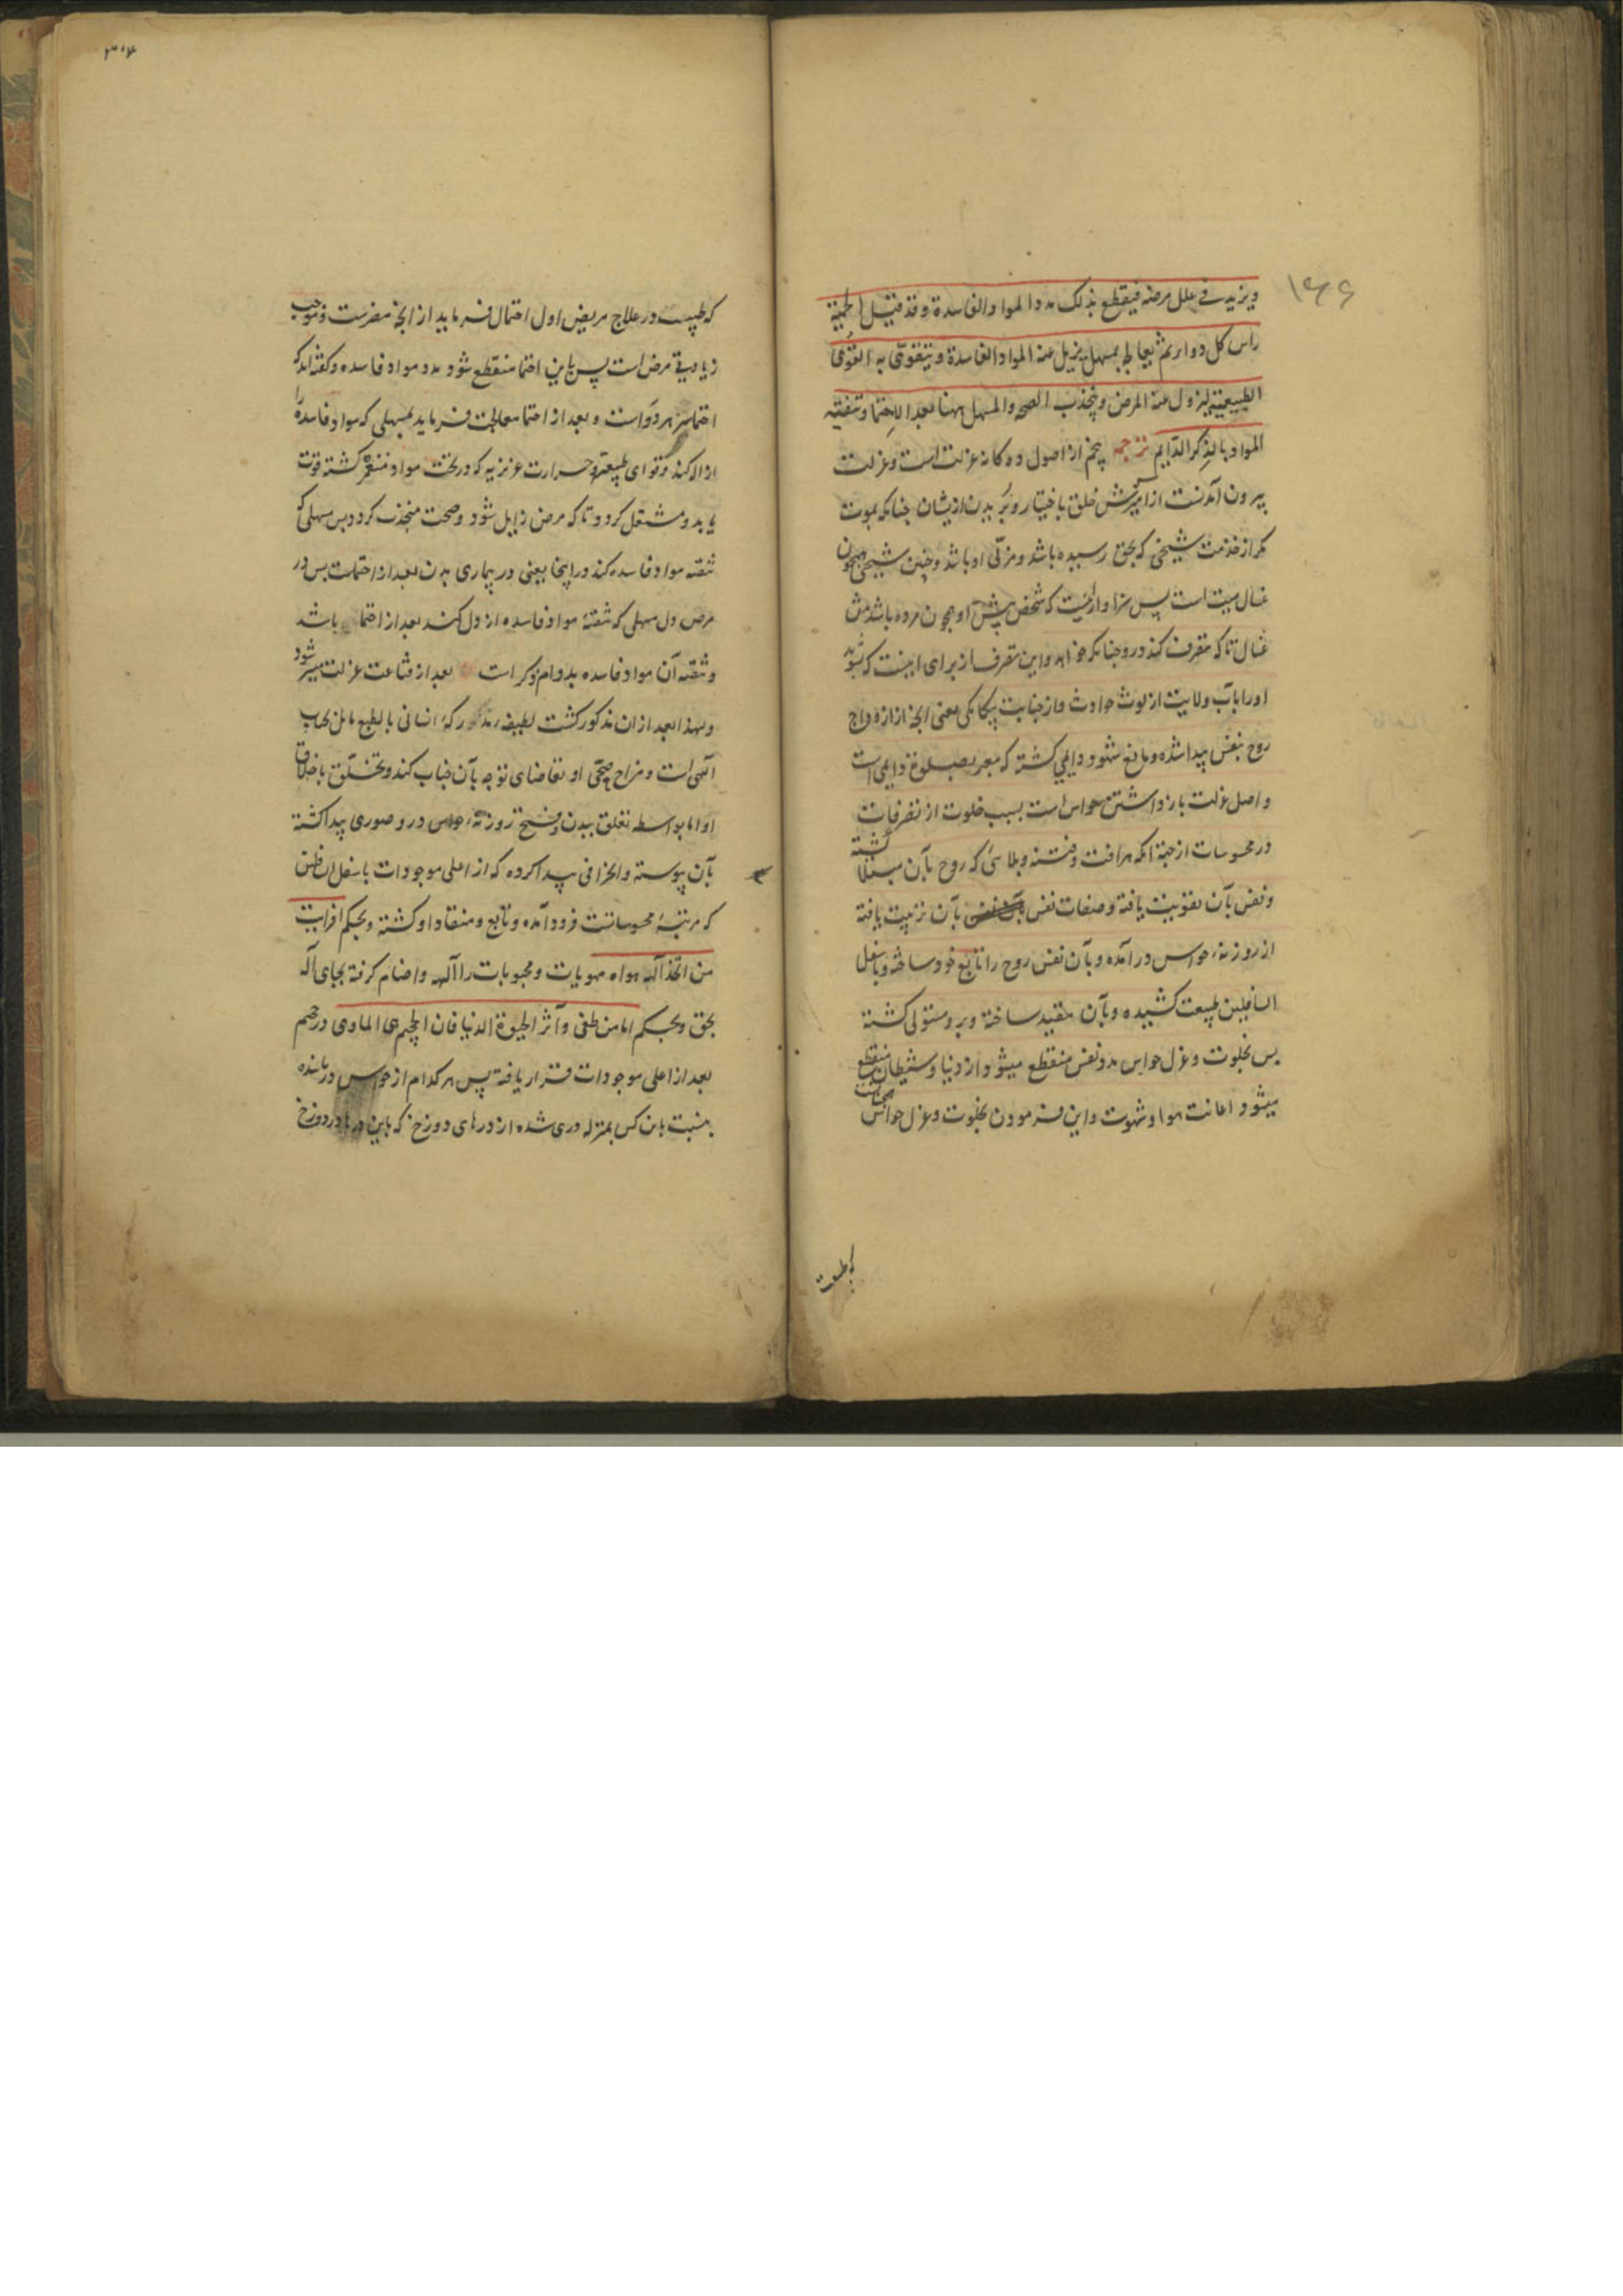 ۱۶۶
ویزید فی علل مرضه فیقطع بذلک مدد المواد الفاسدة و قد قیل الحمیة
راس کل دواء ثم یعالجه بمسهل یزیل عنه المواد الفاسدة و یتقوی به القوی
الطبیعیة لیزول عنه المرض و ینجذب الصحه و المسهل ههنا بعد الاحتما و تنقیه
المواد بالذکر الدایم ترجمه پنجم از اصول ده کانه عزلت است و عزلت
بیرون آمدنست از آمیزش خلق باختیار و بریدن ازیشان چنانکه بموت
مکر از خدمت شیخی که بحق رسیده باشد و مربی او باشد و چنین شیخی همچون
غسال میت است پس سزاوار انیست که شخص پیش او همچون مرده باشد پیش
غسال تا که تصرف کند درو چنانکه خواهد و این تصرف از برای اینست که بشوید
اورا بآب ولایت از لوث حوادث و از جنابت بیکانکی یعنی انچه از ازدواج
روح بنفس پیدا شده و مانع شهود دایمی کشته که معبر بصلوة دایمی است
و اصل عزلت بازداشتن حواس است بسبب خلوت از تصرفات
در محسوسات از جهة انکه هر افت و فتنه و بلائی که روح بآن مبتلا کشته
و نفس بآن تقویت یافته و صفات نفس بآن تربیت یافته
از روزنه حواس در آمده و بآن نفس روح را تابع خود ساخته و باسفل
السافلین طبیعت کشیده و بآن مقید ساخته و برو مستولی کشته
پس بخلوت و عزل حواس مدد نفس منقطع میشود و از دنیا و شیطان منقطع
میشود اعانت هوا و شهوت و این فرمودن بخلوت و عزل حواس همچنانست
که طبیب
۳۰۴
که طبیب در علاج مریض اول احتما فرماید از انچه مضرست و موجب
زیادتی مرض است پس باین احتما منقطع شود مدد مواد فاسده و کفته اند که
احتما سر هر دواست و بعد از احتما معالجت فرماید بمسهلی که مواد فاسده را
ازاله کند و قوای طبیعة و حرارت عزیزیه که در تحت مواد منغمر کشته قوت
یابد و مشتعل کردد تا که مرض زایل شود و صحت منجذب کردد پس مسهلی که
تنقیه مواد فاسده کند در اینجا یعنی در بیماری بدن بعد از احتماست پس در
مرض دل مسهلی که تنقیهٔ مواد فاسده از دل کند بعد از احتما باشد
و تنقیه آن مواد فاسده بدوام ذکر است بعد از قناعت عزلت میسر شود
و لهذا بعد از ان مذکور کشت لطیفه مدرکهٔ انسانی بالطبع مایل بجناب
الهی است و مزاج صحی او تقاضای توجه بآن جناب کند و تخلق باخلاق
او اما بواسطه تعلق ببدن و فتح روزنهٔ حواس درو صوری پیدا کشته
بآن پیوسته و انحرافی پیدا کرده که از اعلی موجودات باسفل ان
که مرتبهٔ محسوساتست فرود آمده و تابع و منقاد او کشته و بحکم افرایت
من اتخذ الهه هواه مهویات و محبوبات را آلهه و اصنام کرفته بجای اله
بحق و بحکم اما من طغی و آثر الحیوة الدنیا فان الجحیم هی الماوی در جحیم
بعد از اعلی موجودات قرار یافته پس هر کدام از حواس درمانده
بنسبت باین کس بمنزله دری شده از درهای دوزخ که باین درها در دوزخ